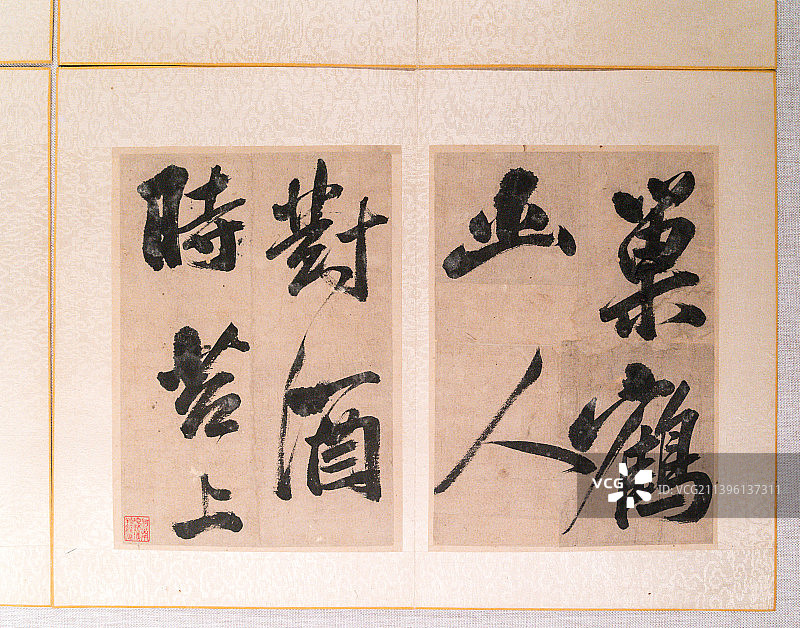 巢鶴
幽人
對酒
時苔上
VCG
ID: VCG211396137311